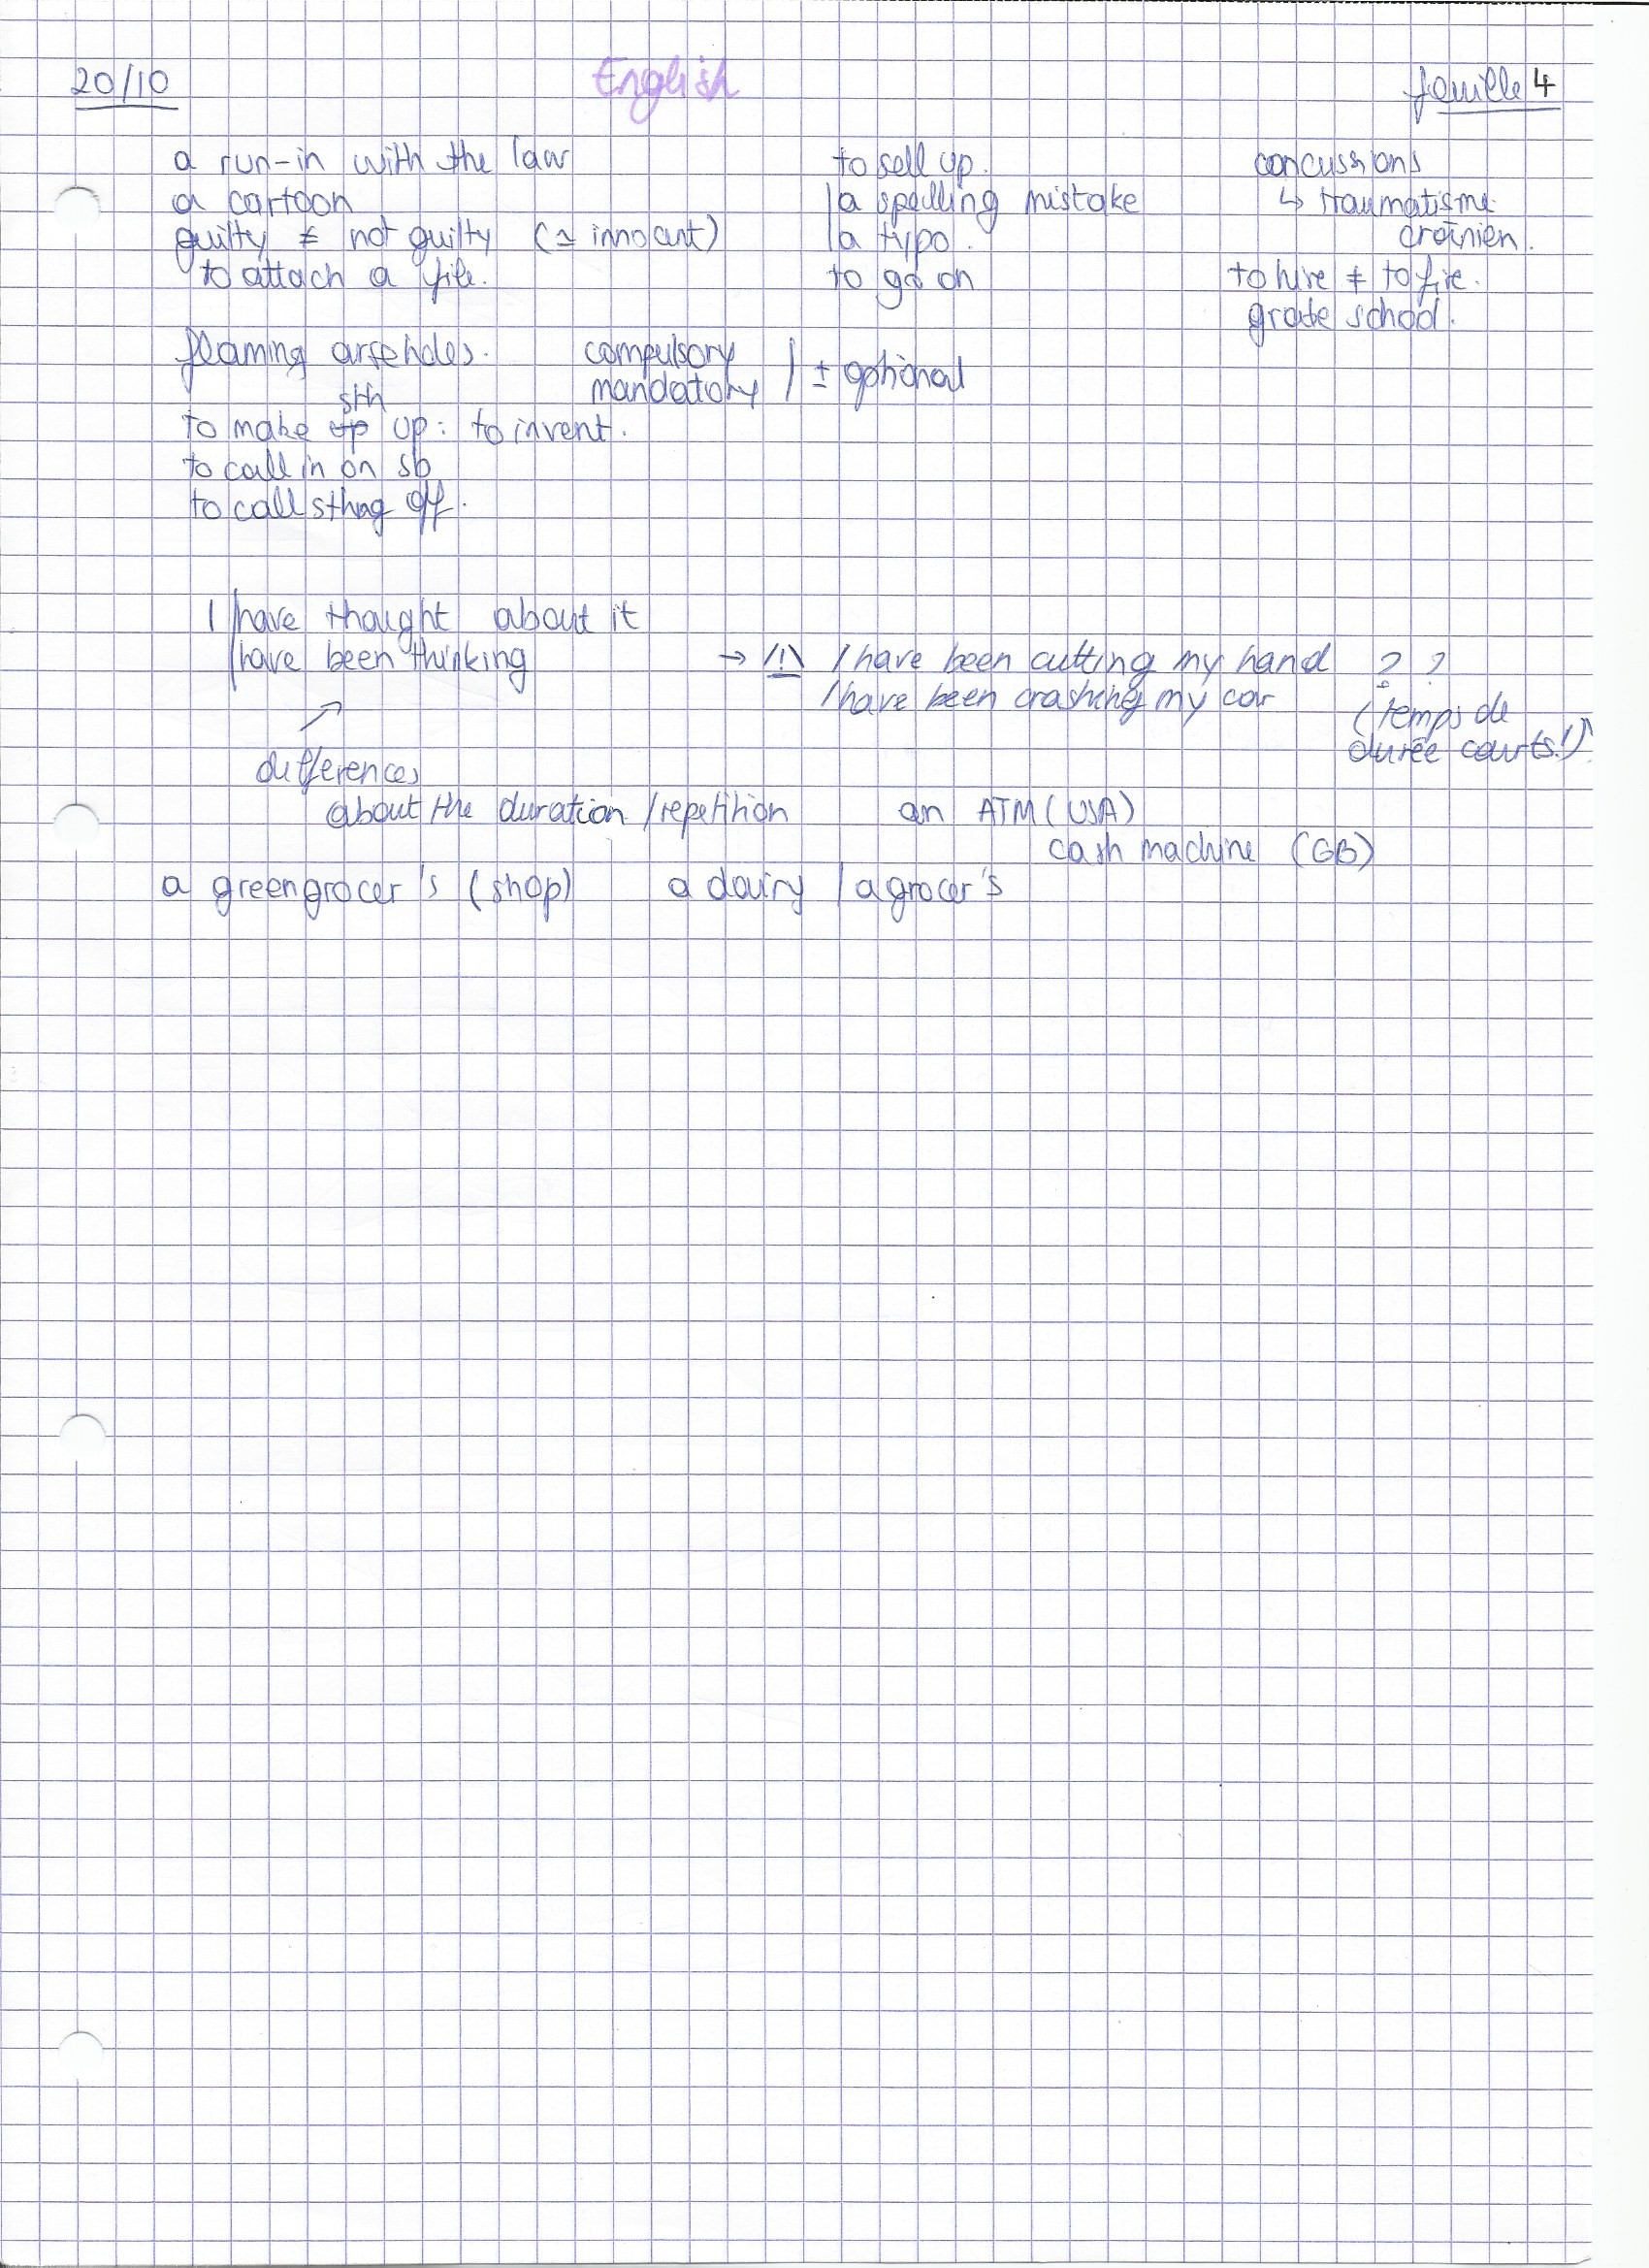 20/10
English
feuille 4
a run-in with the law
a cartoon
guilty ≠ not guilty (≃ innocent)
to attach a file.
to sell up.
a spelling mistake
a typo.
to go on
concussions
↳ traumatisme
crânien.
to hire ≠ to fire.
grade school.
flaming arseholes.
compulsory
mandatory | ± optional
sth
to make up up: to invent.
to call in on sb
to call sthng off.
I have thought about it
have been thinking
→ /!\ I have been cutting my hand ? ?
I have been crashing my car
(temps de
durée courts!)
differences
about the duration / repetition
an ATM (USA)
cash machine (GB)
a greengrocer's (shop) a dairy / a grocer's